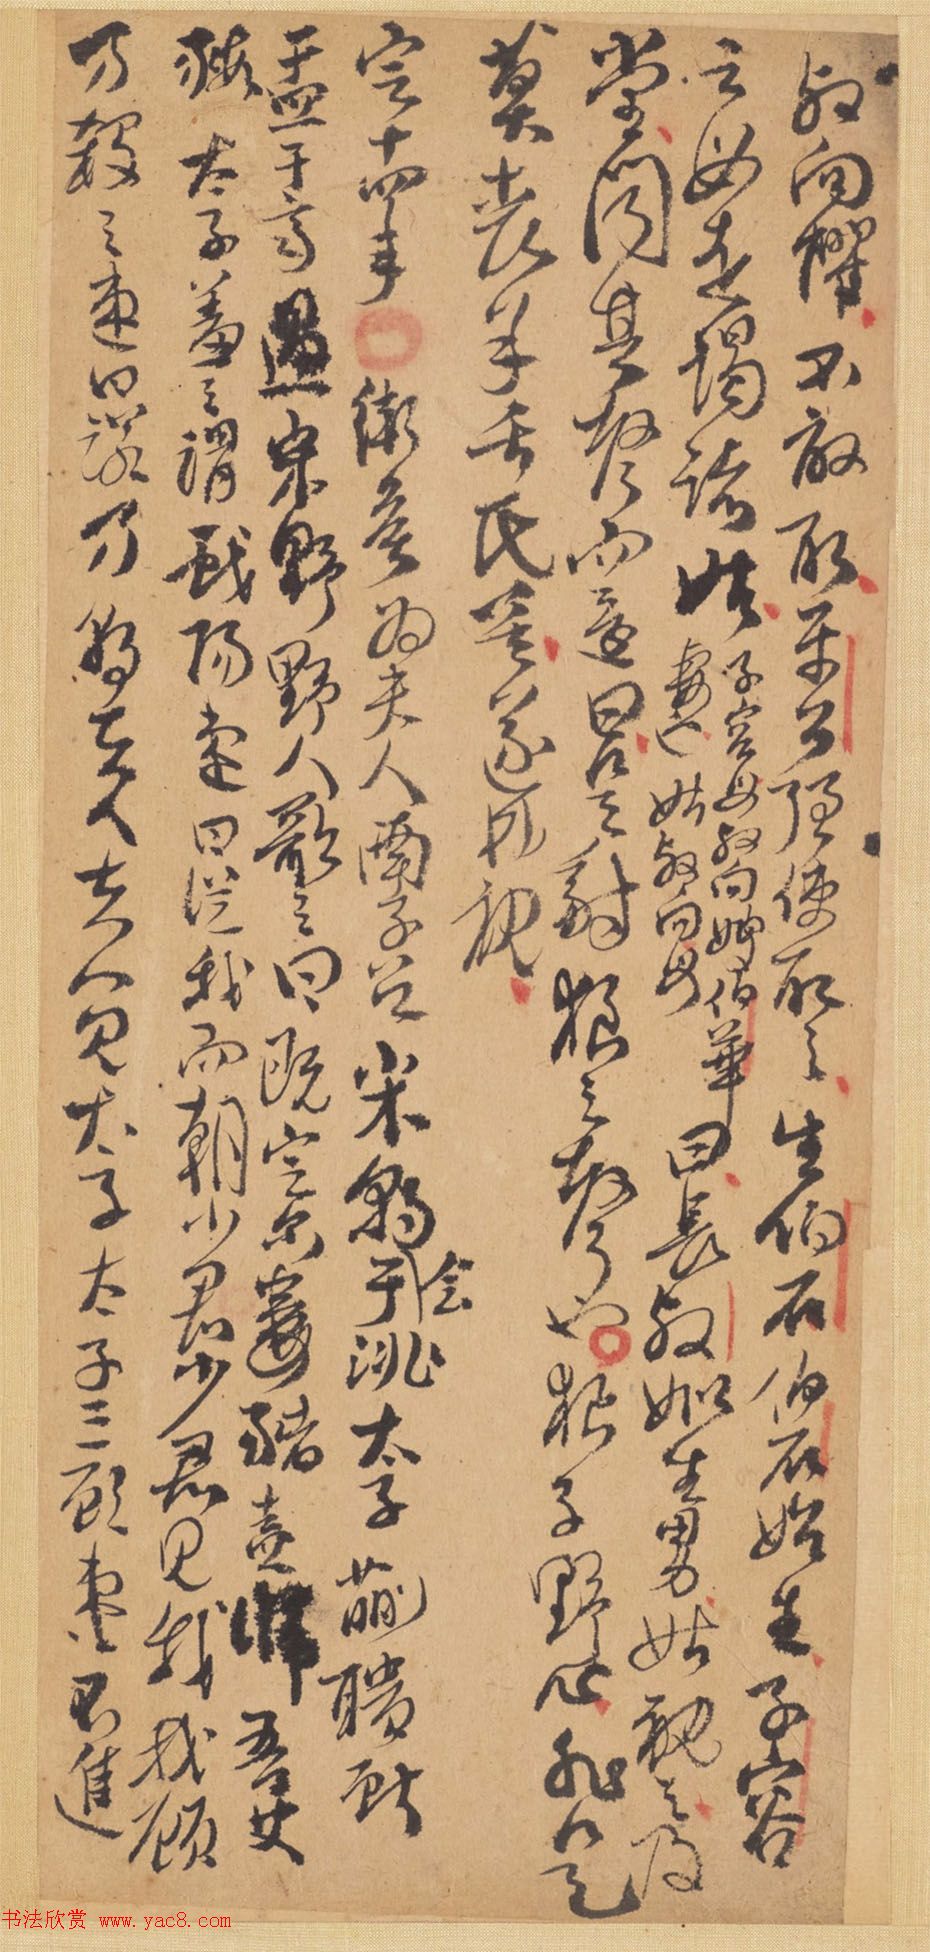 叔向懼不敢取平公強使取之生伯石伯石始生子容
之母走謁諸姑子容母叔向嫂伯華妻也姑叔向母曰長叔姒生男姑視之及
堂聞其聲而還曰是豺狼之聲也狼子野心非是
莫喪羊舌氏矣遂弗視
定十四年 衛侯為夫人南子召宋朝會于洮太子蒯聵獻
盂于齊過宋野野人歌之曰既定爾婁豬盍歸吾艾
豭太子羞之謂戲陽速曰從我而朝少君少君見我我顧
乃殺之速曰諾乃朝夫人夫人見太子太子三顧速不進
书法欣赏 www.yac8.com